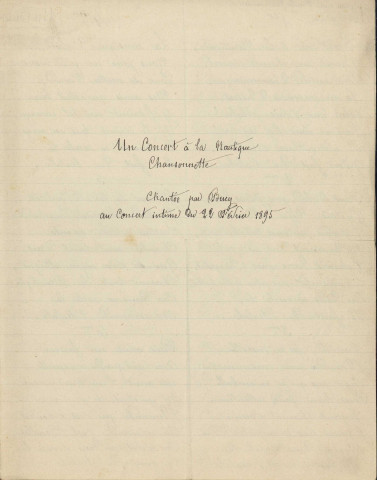 Un Concert à la Nautique
Chansonnette
Chantée par
au Concert intime du 22 Février 1895